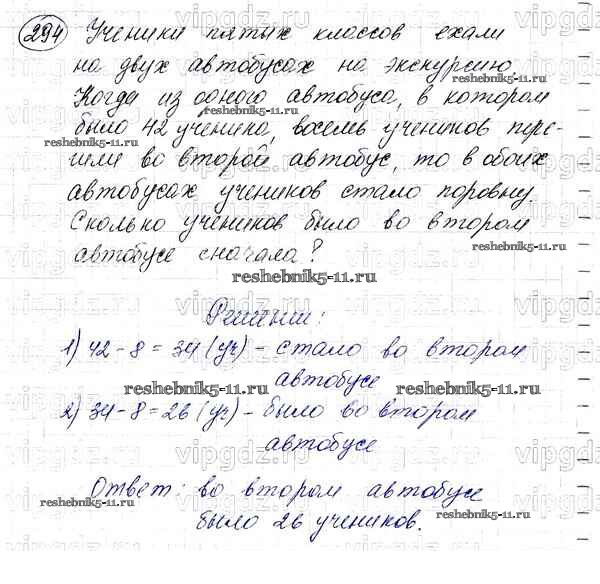 294 Ученики пятых классов ехали
на двух автобусах на экскурсию.
Когда из одного автобуса, в котором
было 42 ученика, восемь учеников пере-
шли во второй автобус, то в обоих
автобусах учеников стало поровну.
Сколько учеников было во втором
автобусе сначала?
Решение:
1) 42 - 8 = 34 (уч) - стало во втором
автобусе
2) 34 - 8 = 26 (уч) - было во втором
автобусе
Ответ: во втором автобусе
было 26 учеников.
vipgdz.ru
reshebnik5-11.ru